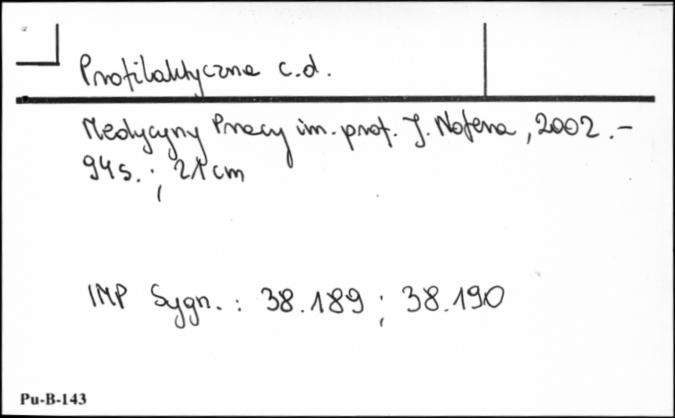 Profilaktyczne c.d.
Medycyny Pracy im. prof. J. Nofera, 2002. –
94 s. ; 21 cm
IMP Sygn. : 38.189 ; 38.190
Pu-B-143